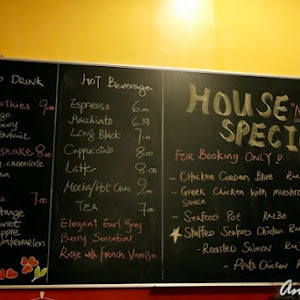 DRINK
othies 9.00
shake 8.00
chocolate
HOT Beverage
Espresso 6.00
Macchiato 6.50
Long Black 7.00
Cappuccino 8.00
Latte 8.00
Mocha/Hot Choc 9.00
TEA 7.00
Elegant Earl Grey
Berry Sensation
Rose with French Vanilla
HOUSE
SPECI
FOR Booking ONLY!
- Chicken Cordon Blue RM
- Greek Chicken with Mushroom
Sauce
- Seafood Pot RM30
Stuffed Seafood Chicken RM
- Roasted Salmon RM
- Pesto Chicken RM
An